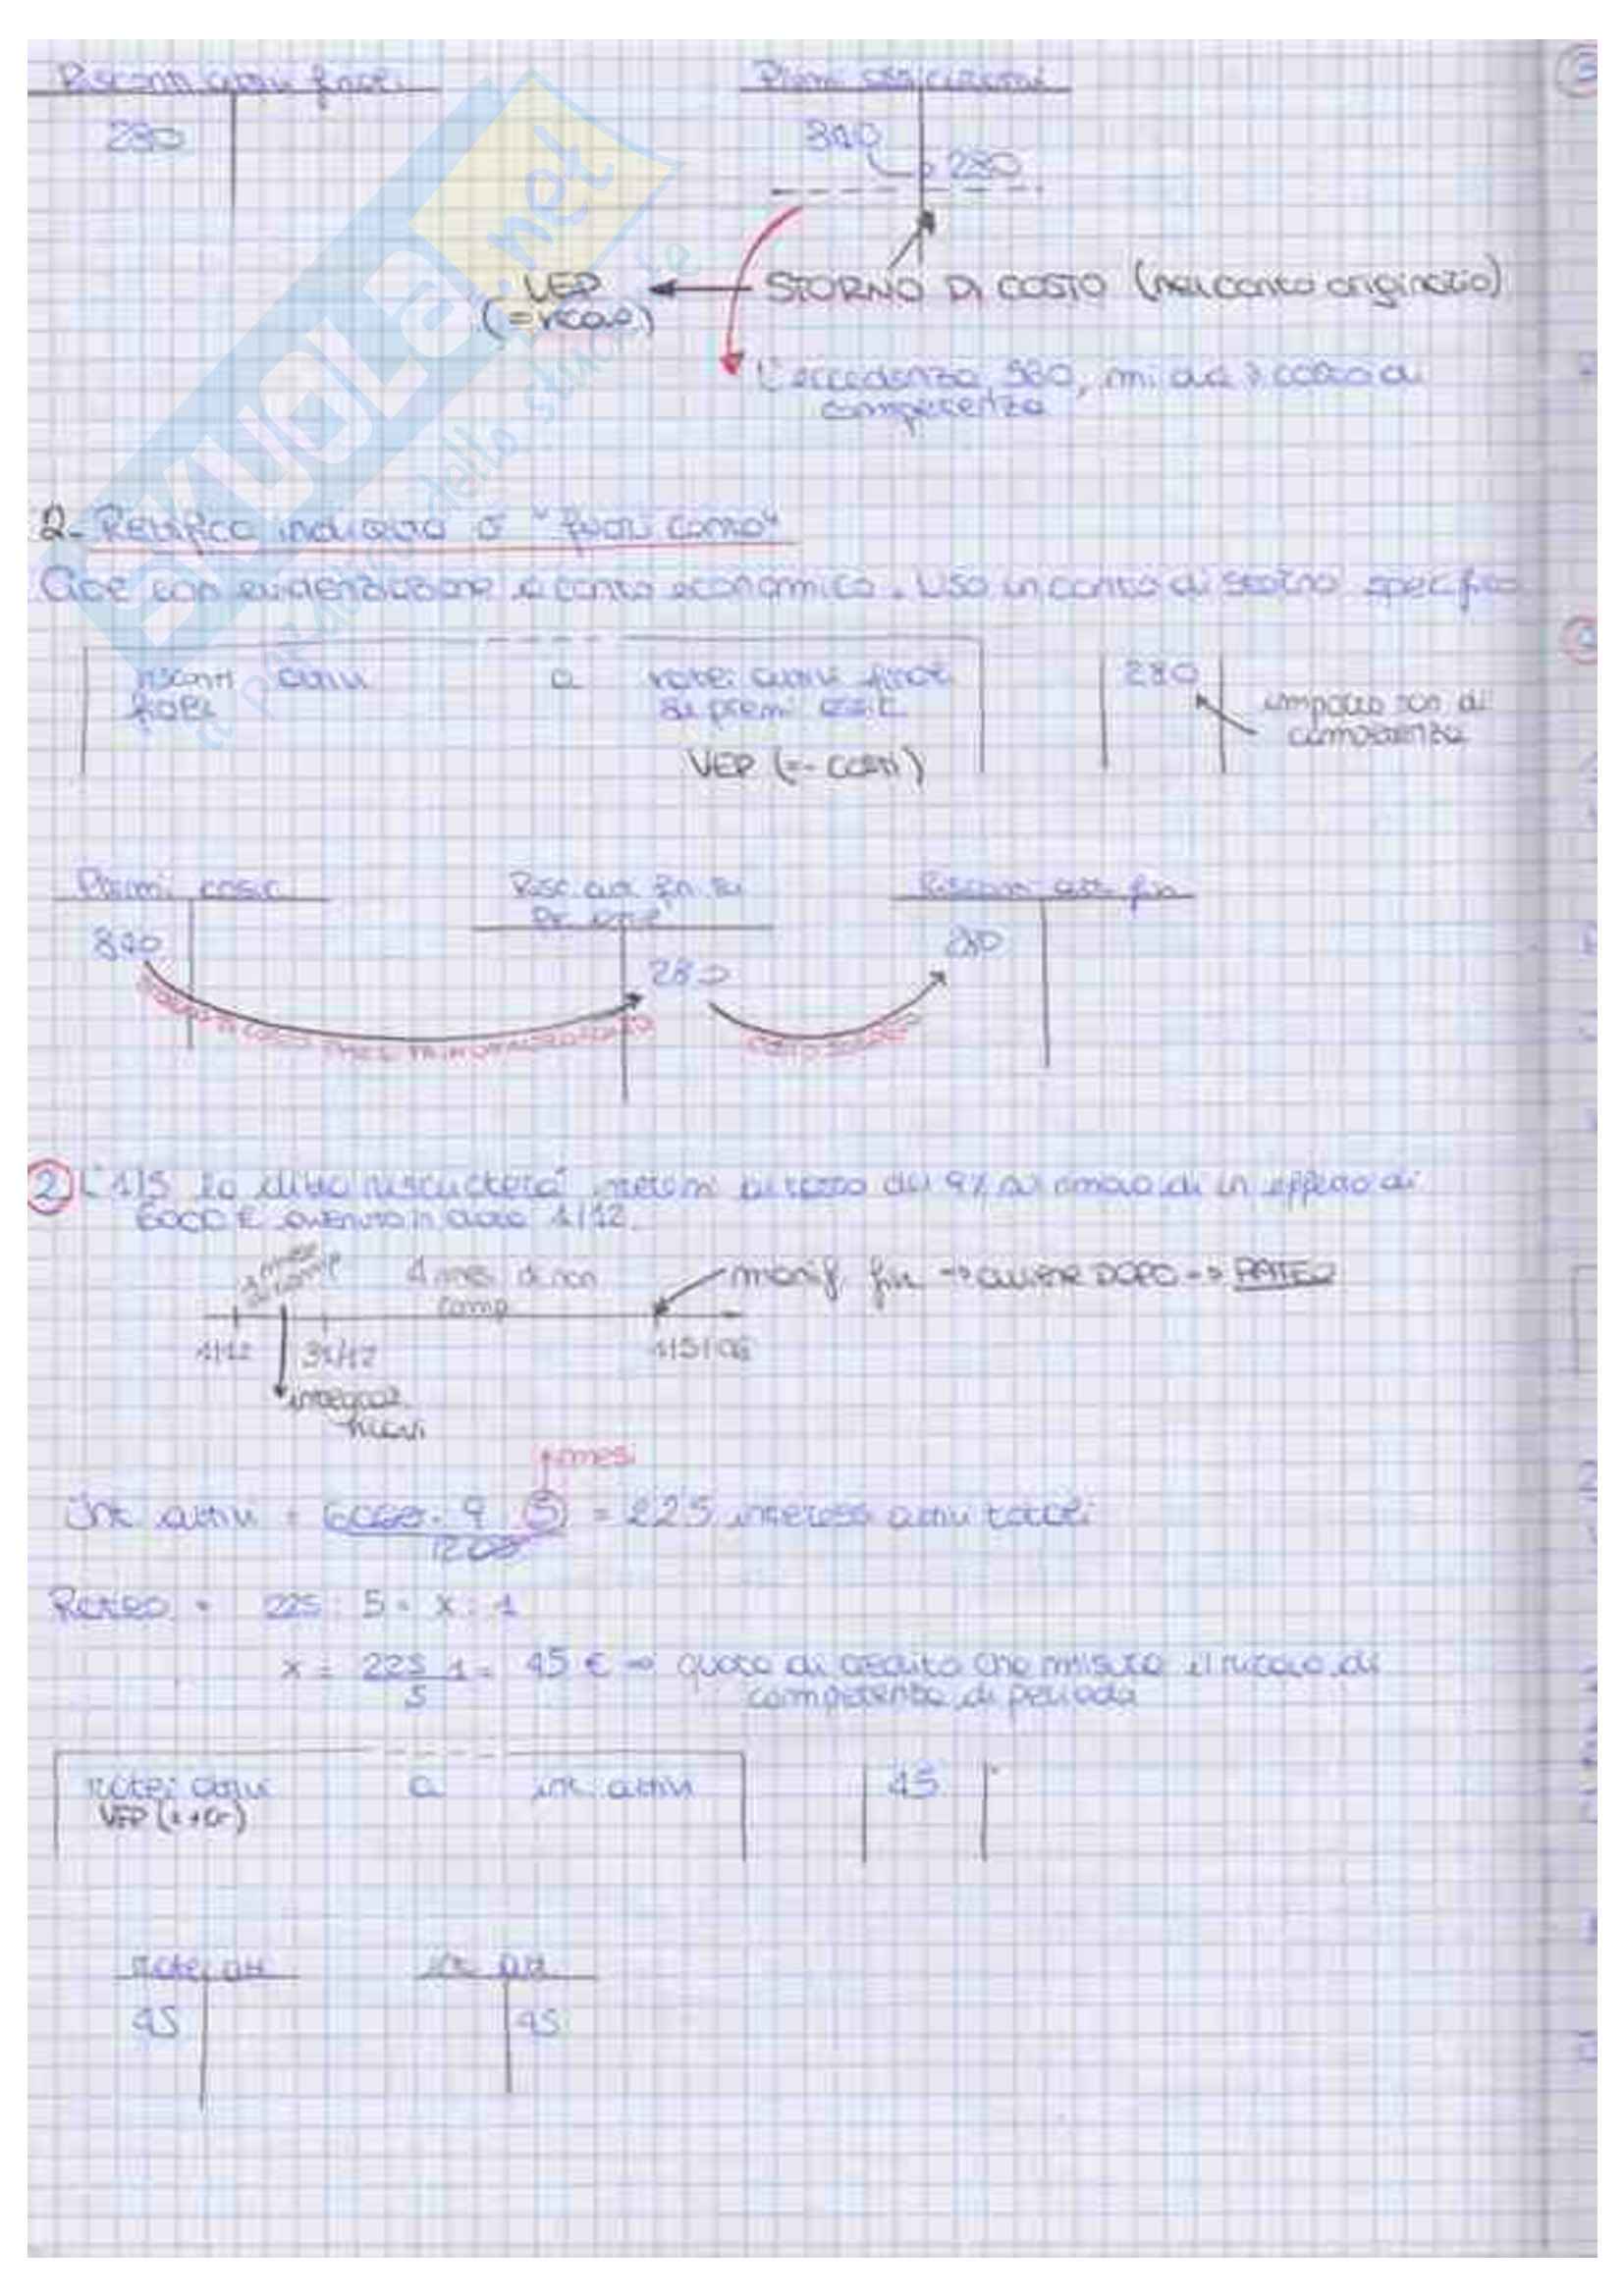 Risconti attivi finali
Premi assicurazioni
3
280
840
280
VEP
(=ricavi)
STORNO DI COSTO (nel conto originario)
L'eccedenza, 560, mi dà il costo di
competenza
2- Rettifica indiretta o "fuori conto"
Cioè con evidenziazione conto economico. Uso un conto di storno specifico
risconti attivi a
finali
di premi assic.
280
importo non di
competenza
VEP (=- costi)
Premi assic
Risc. att. fin. su
Pr. assic
Risconti att. fin
840
280
280
2 L'1/5 la ditta riscuoterà interessi al tasso del 9% di un effetto di
6000 € avvenuto in data 1/12.
1 mese
di comp
4 mesi di non
comp
manif. fin → avviene DOPO → RATEO
1/12
31/12
1/5/06
integraz.
ricavi
mesi
Int attivi = 6000 · 9 · 5 = 225 interessi attivi totali
1200
Rateo = 225 : 5 = x : 1
x = 225 · 1 = 45 € → quota di credito che misura il ricavo di
5
competenza di periodo
ratei attivi a int. attivi 45
VEP (=+cr)
ratei att
int. att
45
45
SKUOLA.net